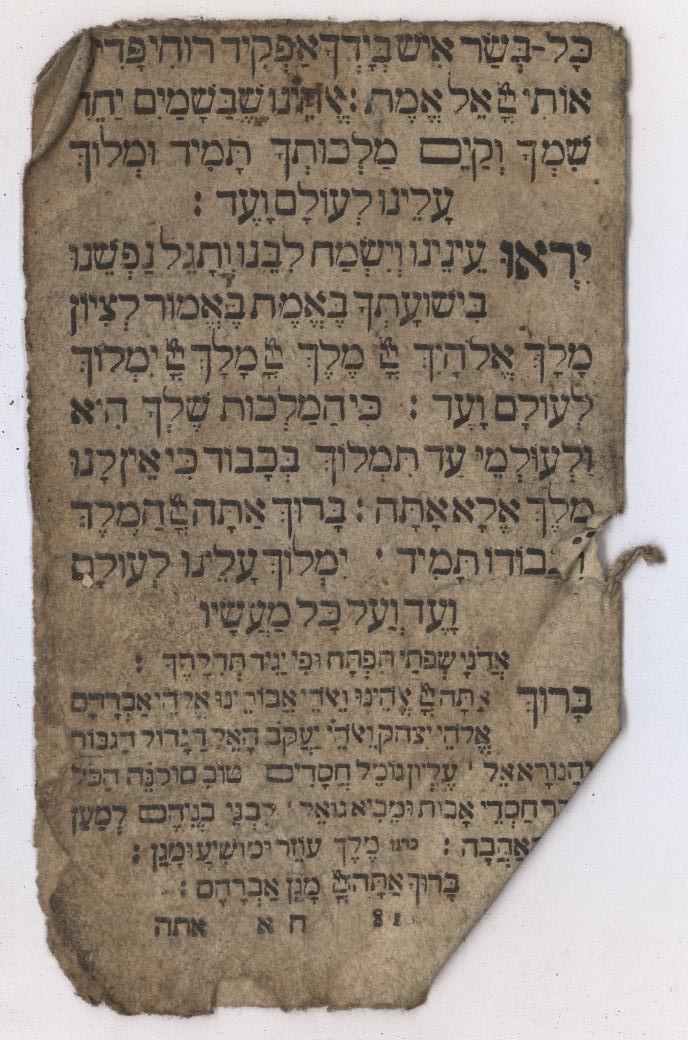 כָּל־בְּשַׂר אִישׁ בְּיָדְךָ אַפְקִיד רוּחִי פָּדִי
אוֹתִי יְיָ אֵל אֱמֶת: אֱלֹהֵינוּ שֶׁבַּשָּׁמַיִם יַחֵד
שִׁמְךָ וְקַיֵּם מַלְכוּתְךָ תָּמִיד וּמְלוֹךְ
עָלֵינוּ לְעוֹלָם וָעֶד:
יִרְאוּ עֵינֵינוּ וְיִשְׂמַח לִבֵּנוּ וְתָגֵל נַפְשֵׁנוּ
בִּישׁוּעָתְךָ בֶּאֱמֶת בֶּאֱמוֹר לְצִיּוֹן
מָלַךְ אֱלֹהָיִךְ יְיָ מֶלֶךְ יְיָ מָלָךְ יְיָ יִמְלוֹךְ
לְעוֹלָם וָעֶד: כִּי הַמַּלְכוּת שֶׁלְּךָ הִיא
וּלְעוֹלְמֵי עַד תִּמְלוֹךְ בְּכָבוֹד כִּי אֵין לָנוּ
מֶלֶךְ אֶלָּא אָתָּה: בָּרוּךְ אַתָּה יְיָ הַמֶּלֶךְ
בִּכְבוֹדוֹ תָּמִיד · יִמְלוֹךְ עָלֵינוּ לְעוֹלָם
וָעֶד וְעַל כָּל מַעֲשָׂיו
אֲדֹנָי שְׂפָתַי תִּפְתָּח וּפִי יַגִּיד תְּהִלָּתֶךָ:
בָּרוּךְ אַתָּה יְיָ אֱלֹהֵינוּ וֵאלֹהֵי אֲבוֹתֵינוּ אֱלֹהֵי אַבְרָהָם
אֱלֹהֵי יִצְחָק וֵאלֹהֵי יַעֲקֹב הָאֵל הַגָּדוֹל הַגִּבּוֹר
וְהַנּוֹרָא אֵל עֶלְיוֹן גּוֹמֵל חֲסָדִים טוֹבִים וְקוֹנֵה הַכֹּל
חַסְדֵי אָבוֹת וּמֵבִיא גוֹאֵל לִבְנֵי בְנֵיהֶם לְמַעַן
בְּאַהֲבָה: מֶלֶךְ עוֹזֵר וּמוֹשִׁיעַ וּמָגֵן:
בָּרוּךְ אַתָּה יְיָ מָגֵן אַבְרָהָם:
ח א אתה